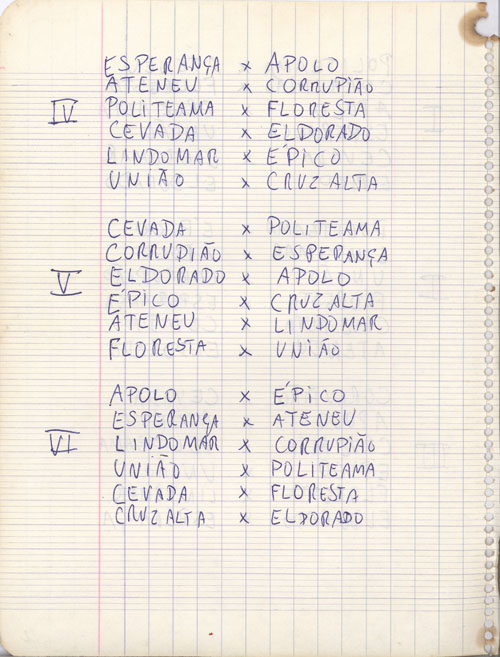 ESPERANÇA x APOLO
ATENEU x CORRUPIÃO
IV POLITEAMA x FLORESTA
CEVADA x ELDORADO
LINDOMAR x ÉPICO
UNIÃO x CRUZ ALTA
CEVADA x POLITEAMA
CORRUPIÃO x ESPERANÇA
V ELDORADO x APOLO
ÉPICO x CRUZ ALTA
ATENEU x LINDOMAR
FLORESTA x UNIÃO
APOLO x ÉPICO
ESPERANÇA x ATENEU
VI LINDOMAR x CORRUPIÃO
UNIÃO x POLITEAMA
CEVADA x FLORESTA
CRUZ ALTA x ELDORADO